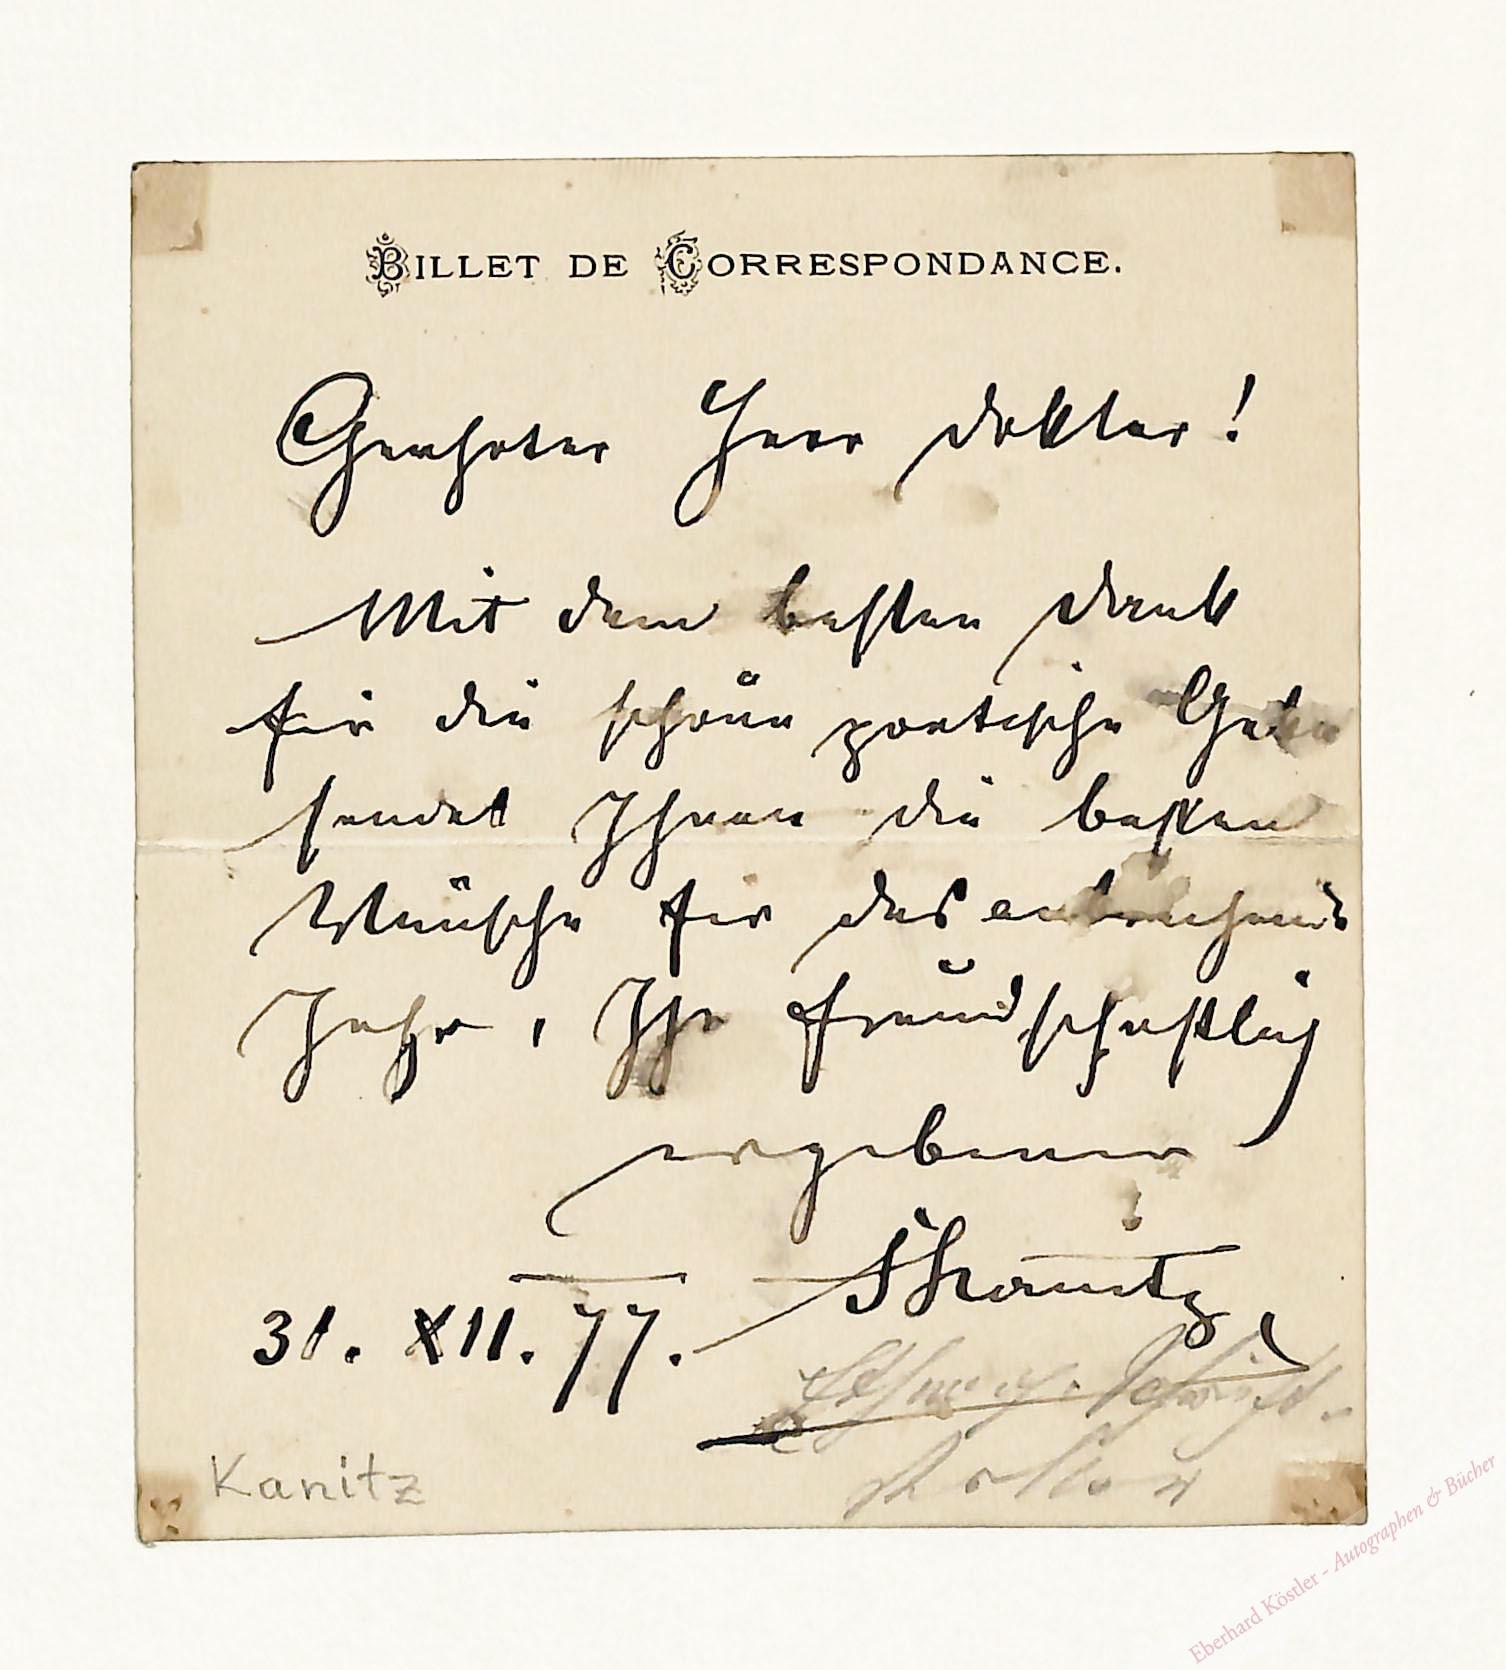 BILLET DE CORRESPONDANCE.
Geehrter Herr Doktor!
Mit dem besten Dank
für die schöne poetische Gabe
sendet Ihnen die besten
Wünsche für das
Jahr, Ihr freundschaftlich
ergebener
FKanitz
31. XII. 77.
Kanitz
Eberhard Köstler - Autographen & Bücher